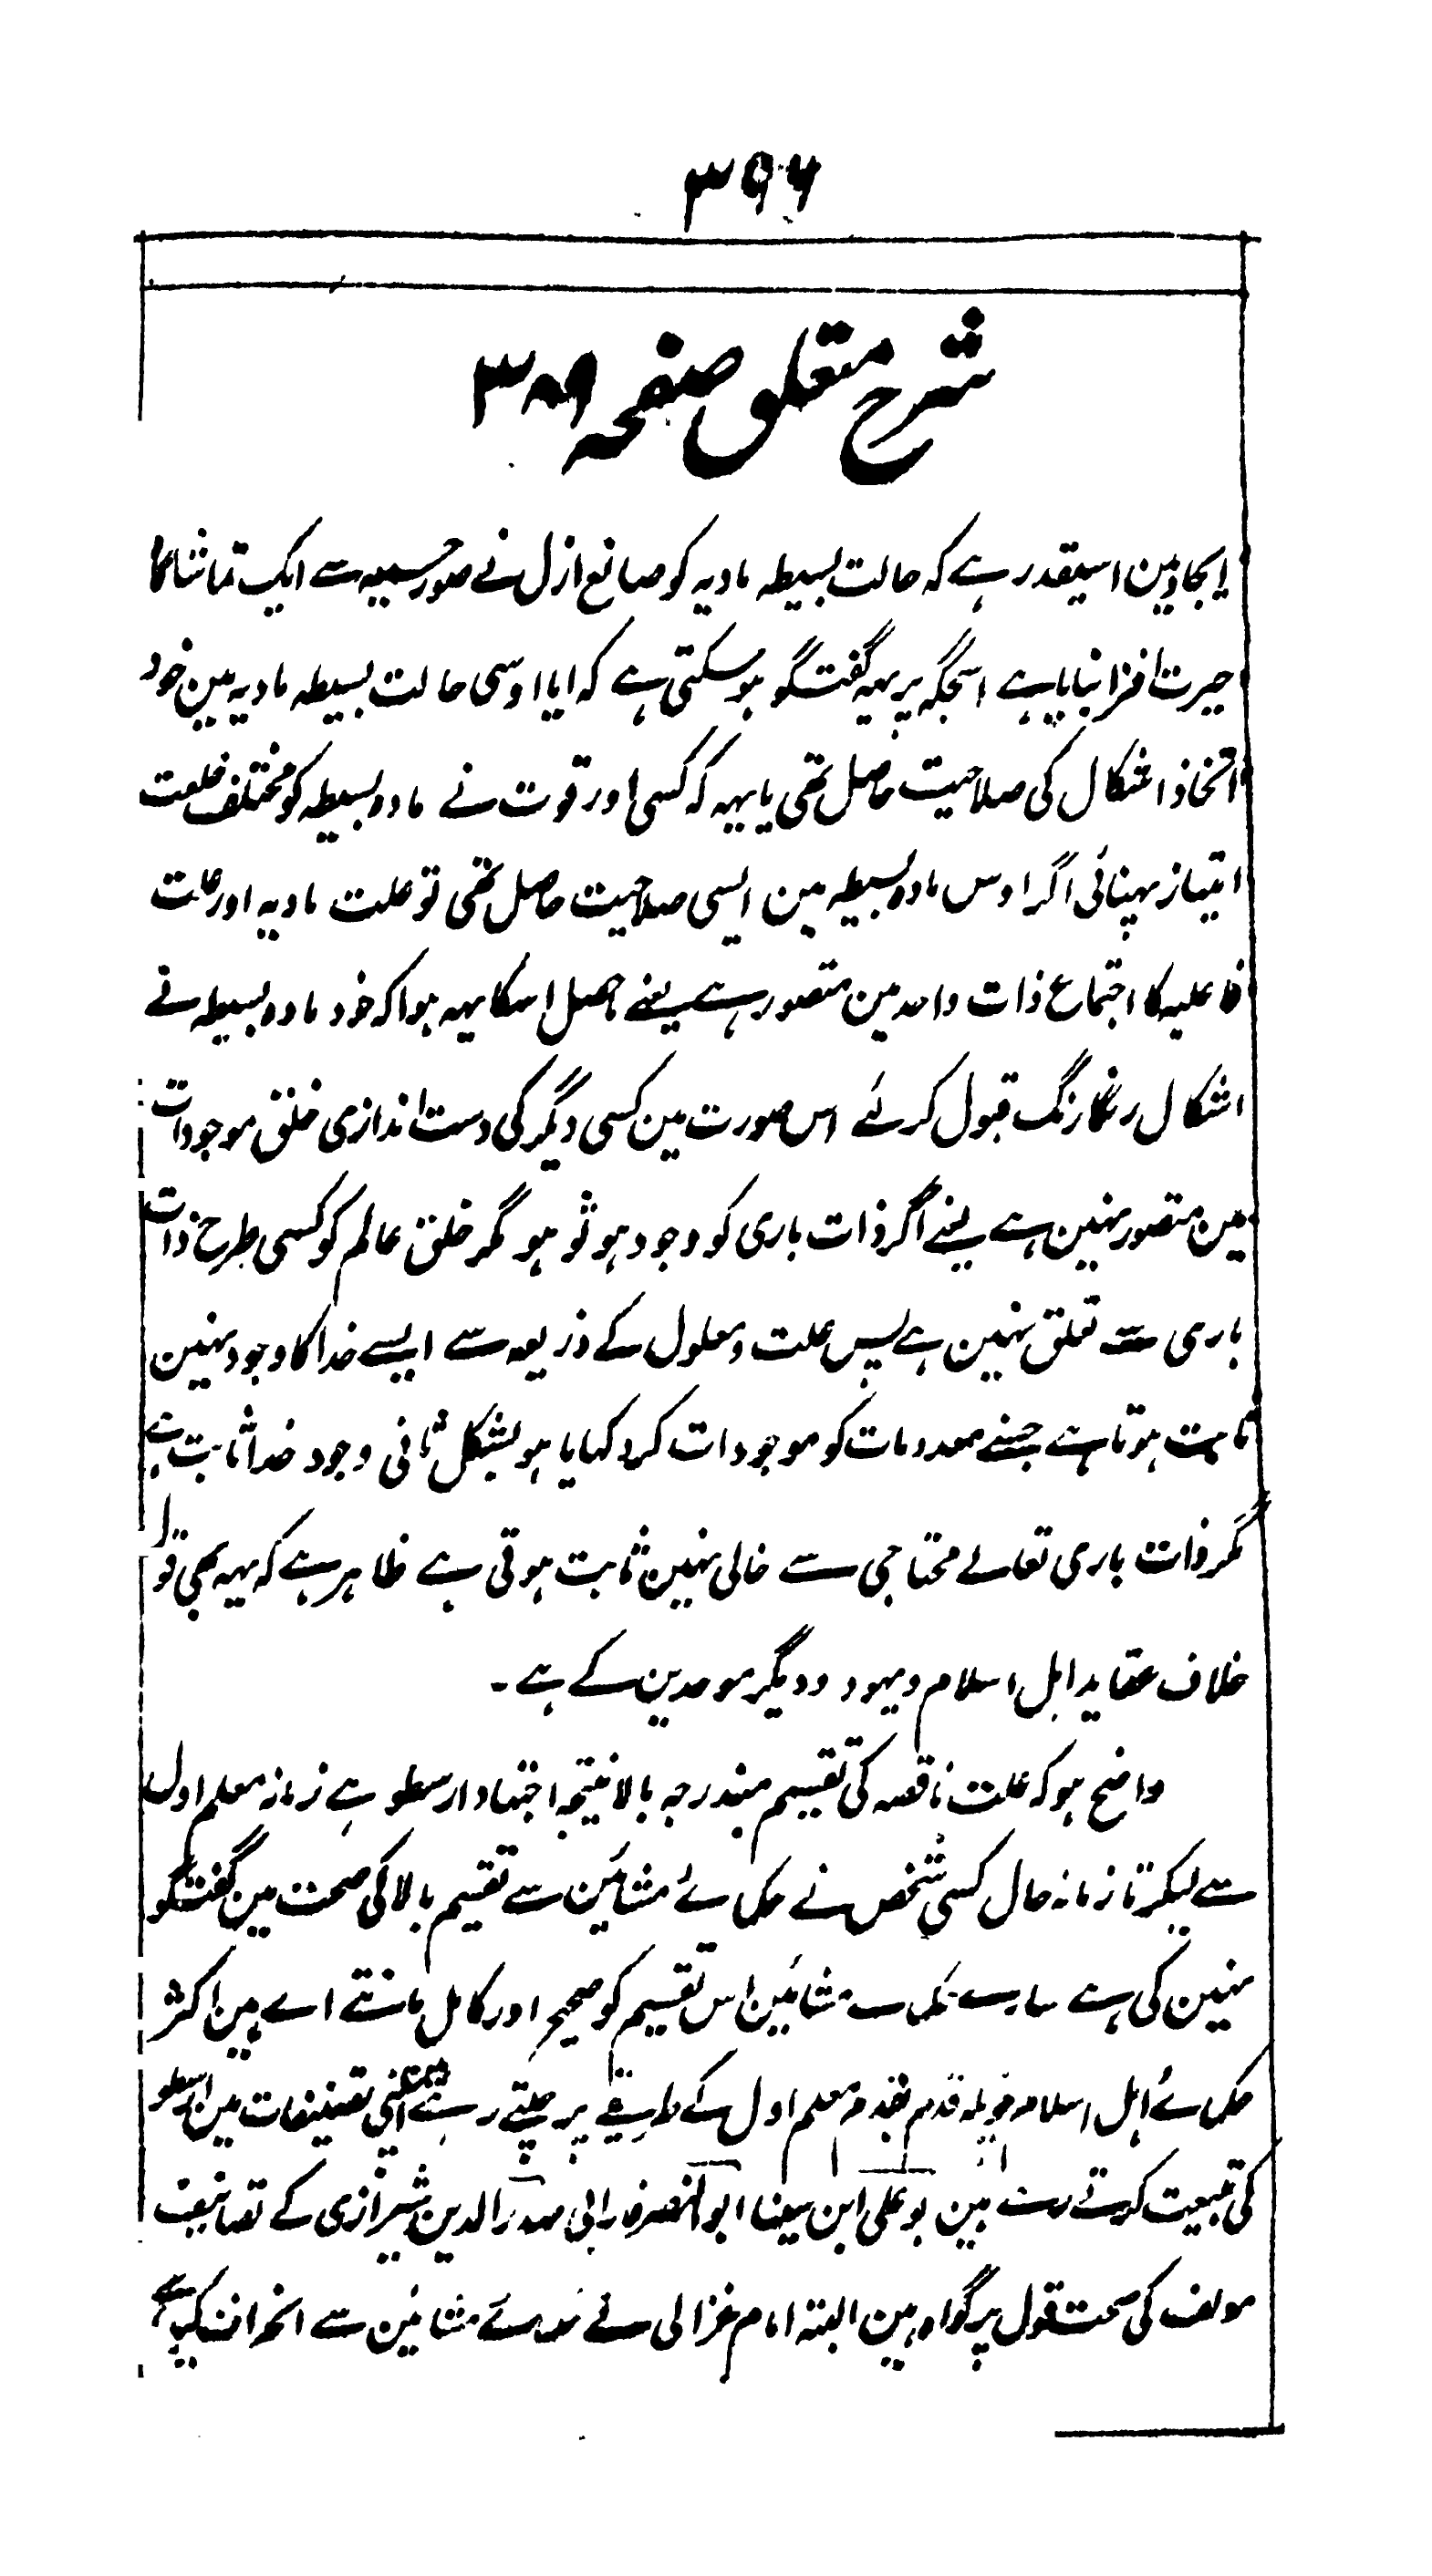 ۳۹۶
شرح متعلق صفحہ ۳۸۹
ایجاد مین اسیقدر ہے کہ حالت بسیطہ مادیہ کو صانع ازل نے صور حسیہ سے ایک تماشا گاہ
حیرت افزا بنایا ہے اسجگہ پر یہہ گفتگو ہو سکتی ہے کہ ایا اوسی حالت بسیطہ مادیہ مین خود
اتخاذ اشکال کی صلاحیت حاصل تھی یا یہہ کہ کسی اور قوت نے مادہ بسیطہ کو مختلف خلعت
امتیاز پہنائی اگر اوس مادہ بسیطہ مین ایسی صلاحیت حاصل تھی تو علت مادیہ اور علت
فاعلیہ کا اجتماع ذات واحد مین متصور ہے یعنے حاصل اسکا یہہ ہوا کہ خود مادہ بسیطہ نے
اشکال رنگا رنگ قبول کر لئے اس صورت مین کسی دیگر کی دست اندازی خلق موجودات
مین متصور نہین ہے یعنے اگر ذات باری کو وجود ہو تو ہو مگر خلق عالم کو کسی طرح ذات
باری سے تعلق نہین ہے پس علت و معلول کے ذریعہ سے ایسے خدا کا وجود نہین
ثابت ہوتا ہے جسنے معدومات کو موجودات کر دکھایا ہو بشکل ثانی وجود خدا ثابت ہے
مگر ذات باری تعالے محتاجی سے خالی نہین ثابت ہوتی ہے ظاہر ہے کہ یہہ بھی قول
خلاف عقاید اہل اسلام و یہود و دیگر موحدین کے ہے۔
واضح ہو کہ علت ناقصہ کی تقسیم مندرجہ بالا نتیجہ اجتہاد ارسطو ہے زمانہ معلم اول
سے لیکر تا زمانہ حال کسی شخص نے حکمائے مشائین سے تقسیم بالا کی صحت مین گفتگو
نہین کی ہے سارے حکماے مشائین اس تقسیم کو صحیح اور کامل مانتے اے ہین اکثر
حکمائے اہل اسلام قدم بقدم معلم اول کے طریقے پر چلتے رہے اپنی تصنیفات مین ارسطو
کی تبعیت کرتے رہے ہین بو علی ابن سینا ابو النصر فارابی صدر الدین شیرازی کے تصانیف
مولف کی صحت قول پر گواہ ہین البتہ امام غزالی نے مشائین سے انحراف کیا ہے